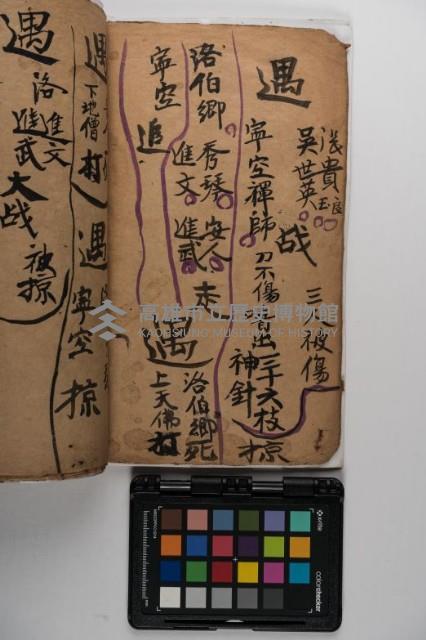 遇
吳世英
浅貴
玉良
战
三人被傷
寧空禪師
刀不傷
出二千六枝
神針
掠
洛伯鄉 秀琴 安人 走
進文 進武
遇
洛伯鄉死
寧空 追
上天佛打
遇
下地僧 打
遇 寧空 掠
遇
洛進文
進武 大战 被掠
高雄市立歷史博物館
KAOHSIUNG MUSEUM OF HISTORY
x-rite
colorchecker